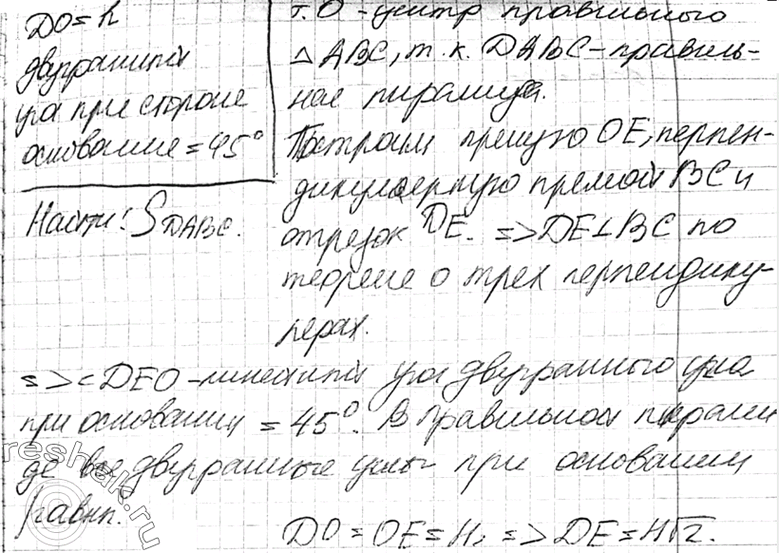 DO = h
двугранный
угол при стороне
основание = 45°
Найти: S DABC.
т. O - центр правильного
△ ABC, т. к. DABC - правиль-
ная пирамида.
Построим прямую OE, перпен-
дикулярную прямой BC и
отрезок DE. => DE⊥BC по
теореме о трех перпендику-
лярах.
=> <DEO - линейный угол двугранного угла
при основании = 45°. В правильной пирами
де все двугранные углы при основании
равны.
DO = OE = H, => DE = H√2.
reshak.ru